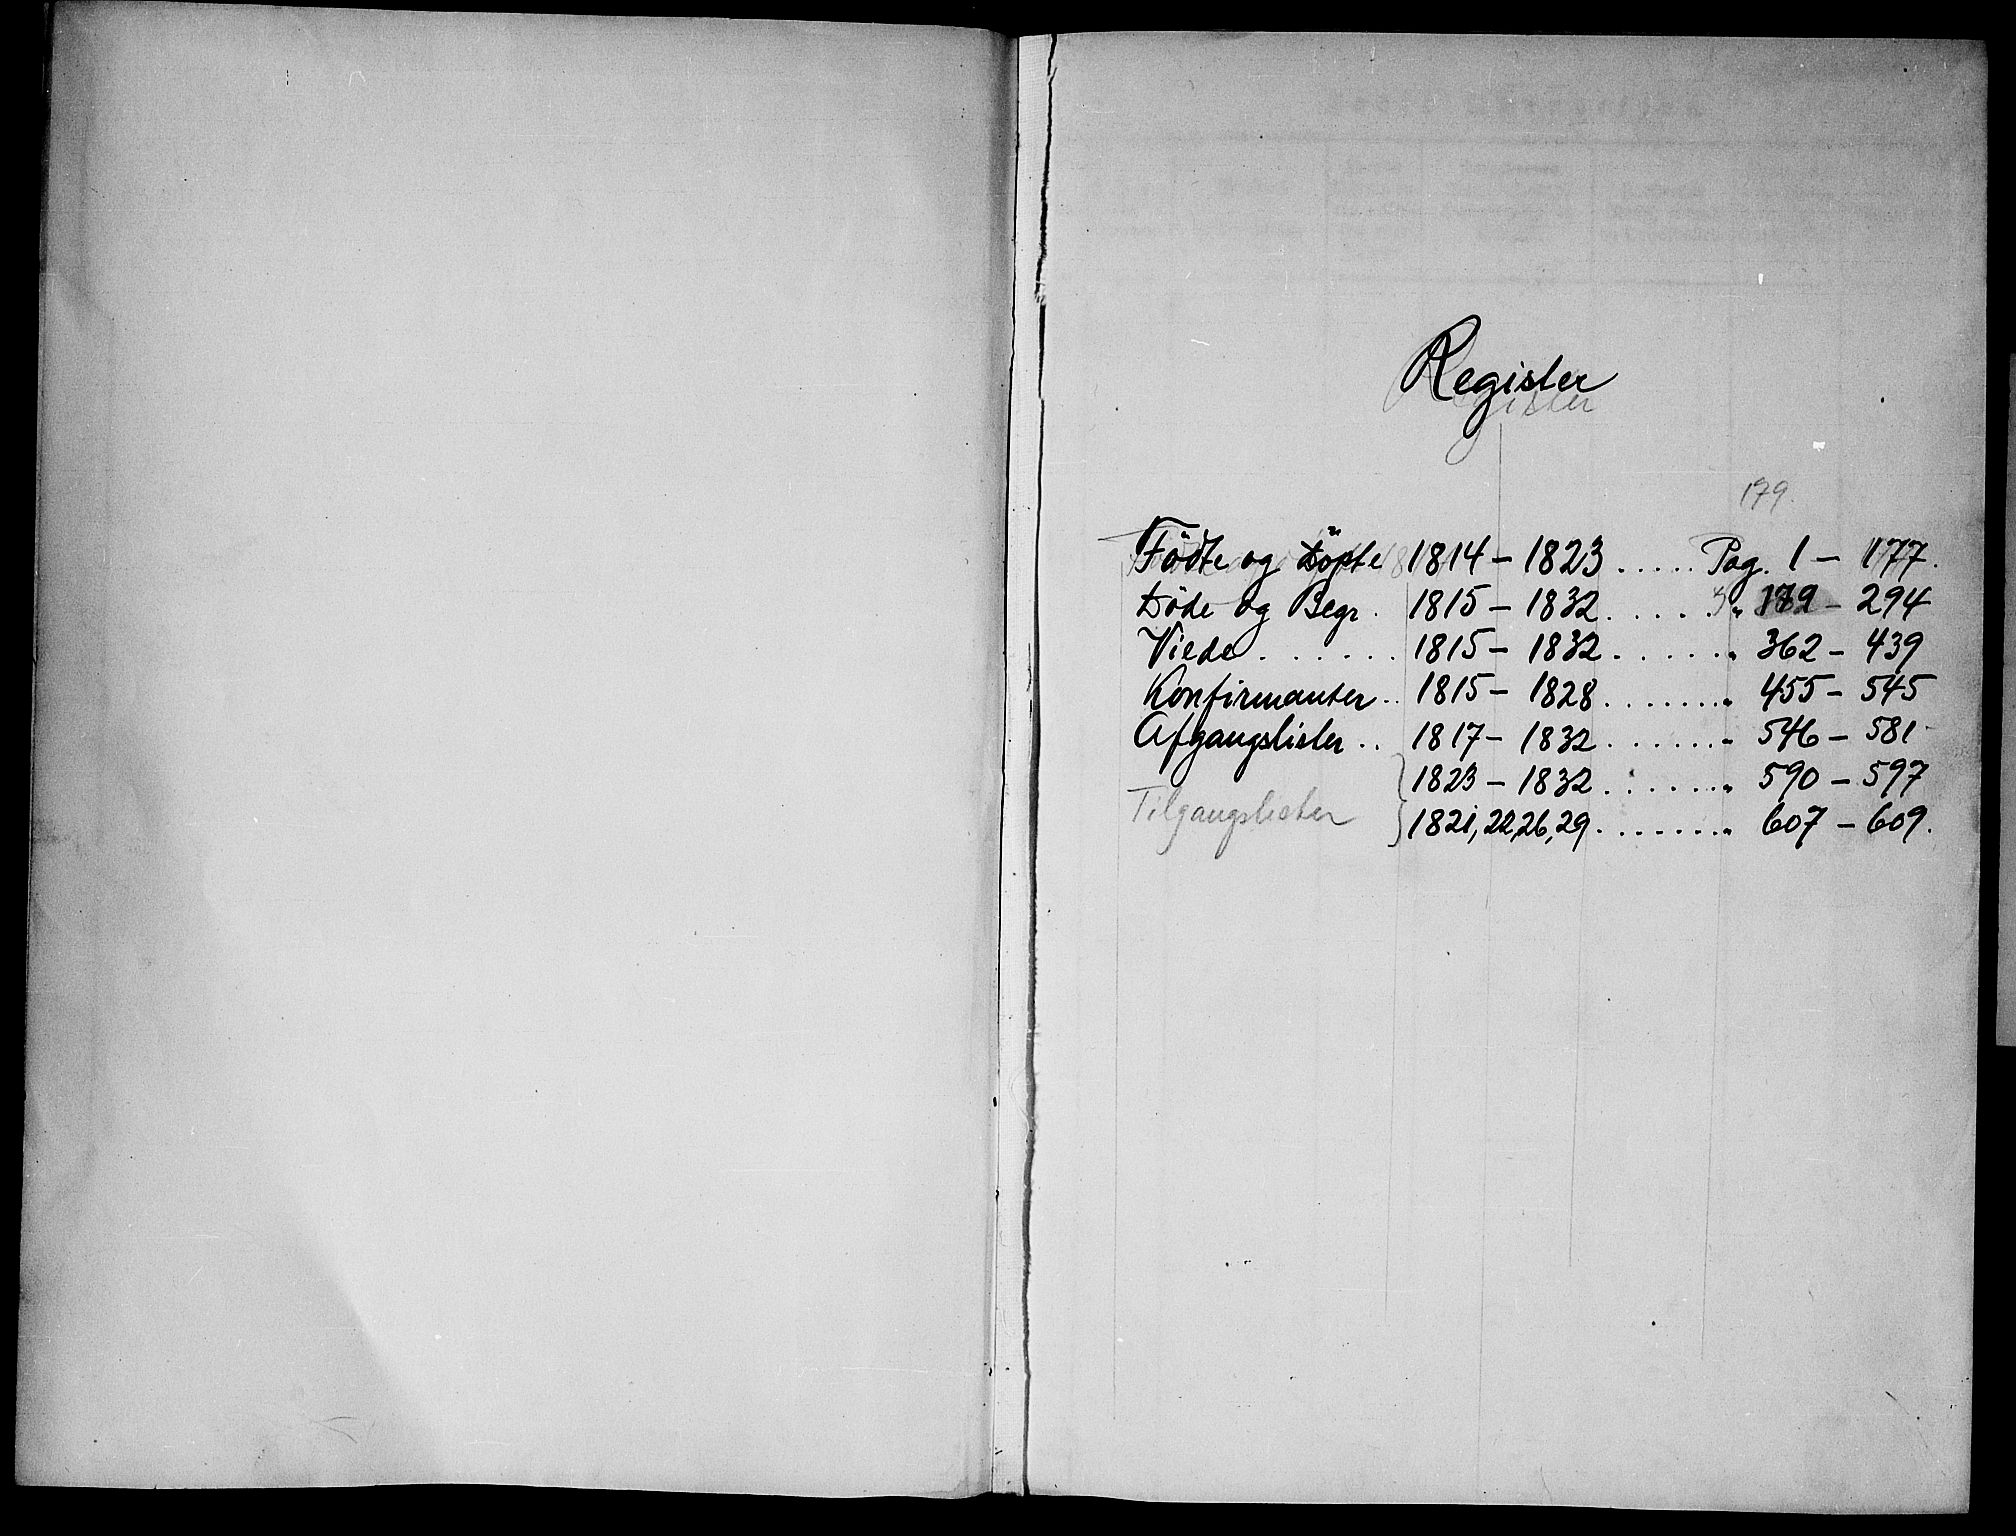 Register
179.
Födte og Döpte 1814 – 1823 ..... Pag. 1 – 177.
Döde og Begr. 1815 – 1832 .... " 179 – 294
Viede ...... 1815 – 1832 ..... " 362 – 439
Konfirmanter .. 1815 – 1828 ...... " 455 – 545
Afgangslister .. 1817 – 1832 ...... " 546 – 581
1823 – 1832 ...... " 590 – 597
Tilgangslister } 1821, 22, 26, 29 ....... " 607 – 609.